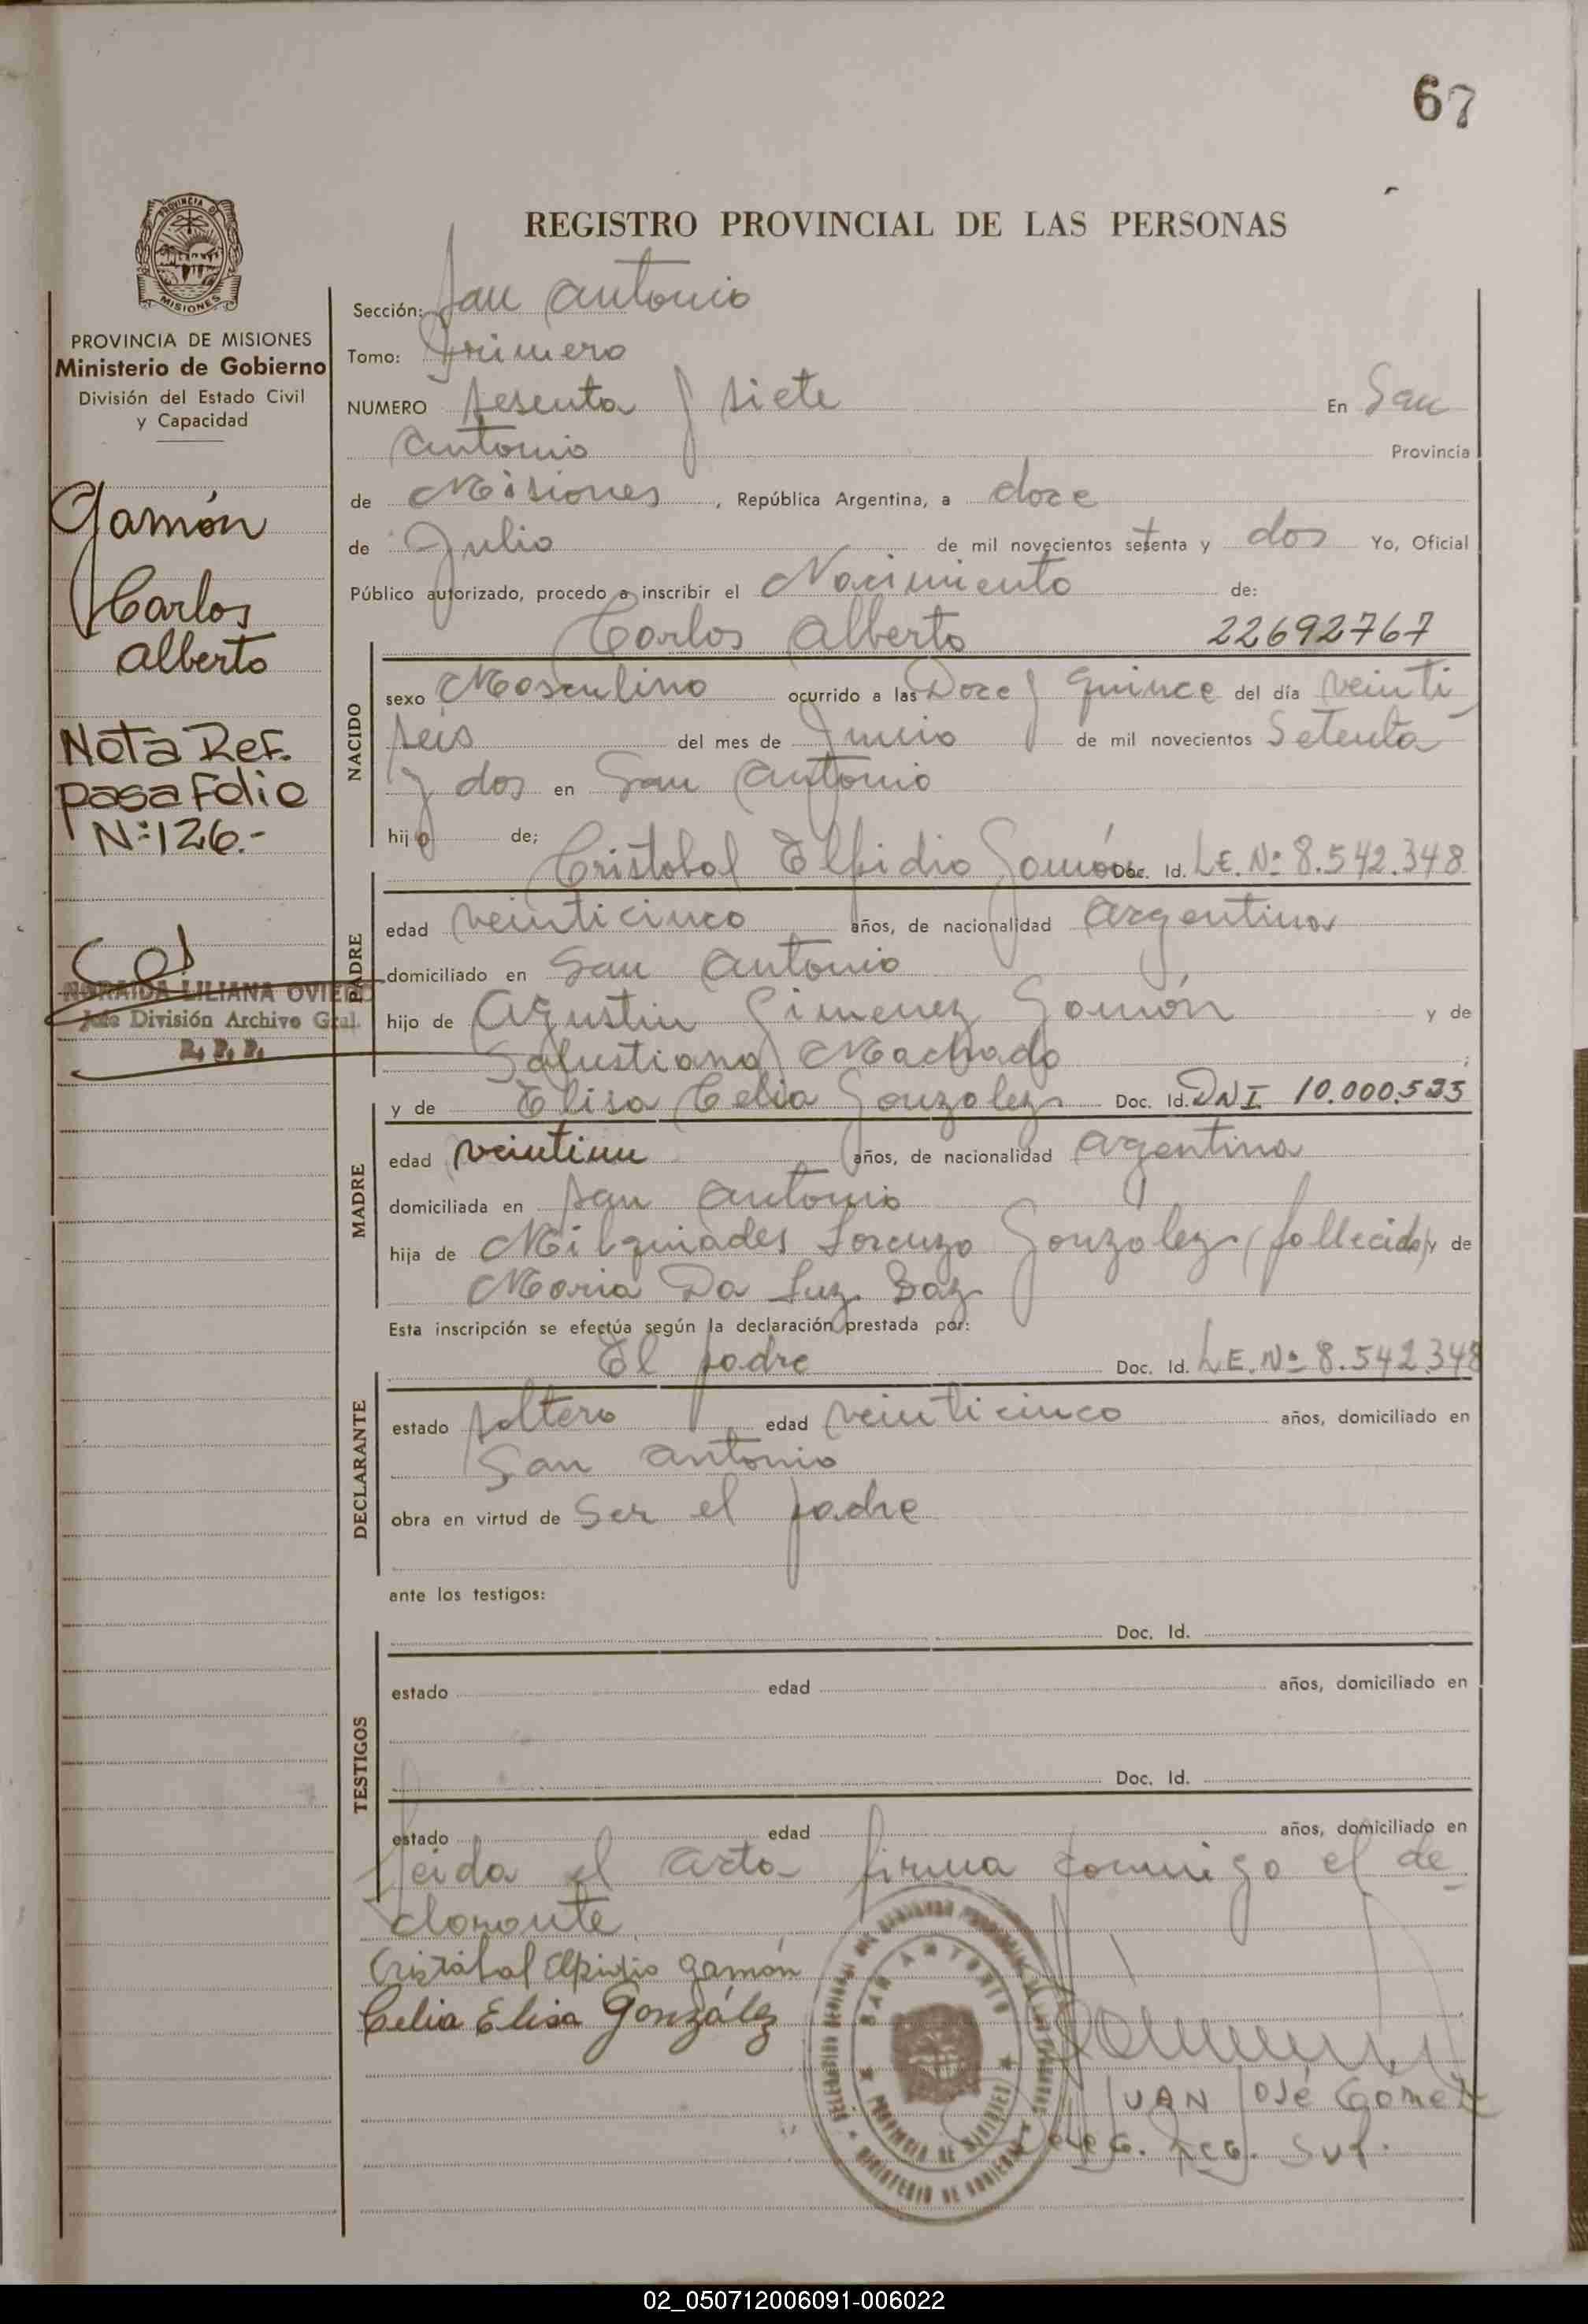 67
REGISTRO PROVINCIAL DE LAS PERSONAS
PROVINCIA DE MISIONES
Ministerio de Gobierno
División del Estado Civil
y Capacidad
Gamón
Carlos
Alberto
Nota Ref.
pasa Folio
Nº:126.-
NORAIDA LILIANA OVIEDO
Jefe División Archivo Gral.
R. P. P.
Sección: San Antonio
Tomo: Primero
NUMERO sesenta y siete En San
Antonio Provincia
de Misiones, República Argentina, a doce
de Julio de mil novecientos setenta y dos Yo, Oficial
Público autorizado, procedo a inscribir el Nacimiento de:
Carlos Alberto 22692767
NACIDO
sexo Masculino ocurrido a las Doce y quince del día veinti
seis del mes de Junio de mil novecientos Setenta
y dos en San Antonio
hijo de;
Cristobal Elpidio Gamón Doc. Id. L.E. Nº 8.542.348
PADRE
edad veinticinco años, de nacionalidad argentina
domiciliado en San Antonio
hijo de Agustin Gimenez Gamón y de
Salustiana Machado;
y de Elisa Celia Gonzalez Doc. Id. DNI 10.000.535
MADRE
edad veintiun años, de nacionalidad argentina
domiciliada en San Antonio
hija de Milquiades Lorenzo Gonzalez (fallecido) y de
Maria Da Luz Baz
Esta inscripción se efectúa según la declaración prestada por:
El padre Doc. Id. L.E. Nº 8.542.348
DECLARANTE
estado soltero edad veinticinco años, domiciliado en
San Antonio
obra en virtud de Ser el padre
ante los testigos:
Doc. Id.
TESTIGOS
estado edad años, domiciliado en
Doc. Id.
estado edad años, domiciliado en
Leida el acta firma conmigo el de
clarante
Cristóbal Elpidio Gamón
Celia Elisa González
SAN ANTONIO
PROVINCIA DE MISIONES
MINISTERIO DE GOBIERNO
JUAN JOSÉ GÓMEZ
Deleg. Reg. Sup.
02_050712006091-006022